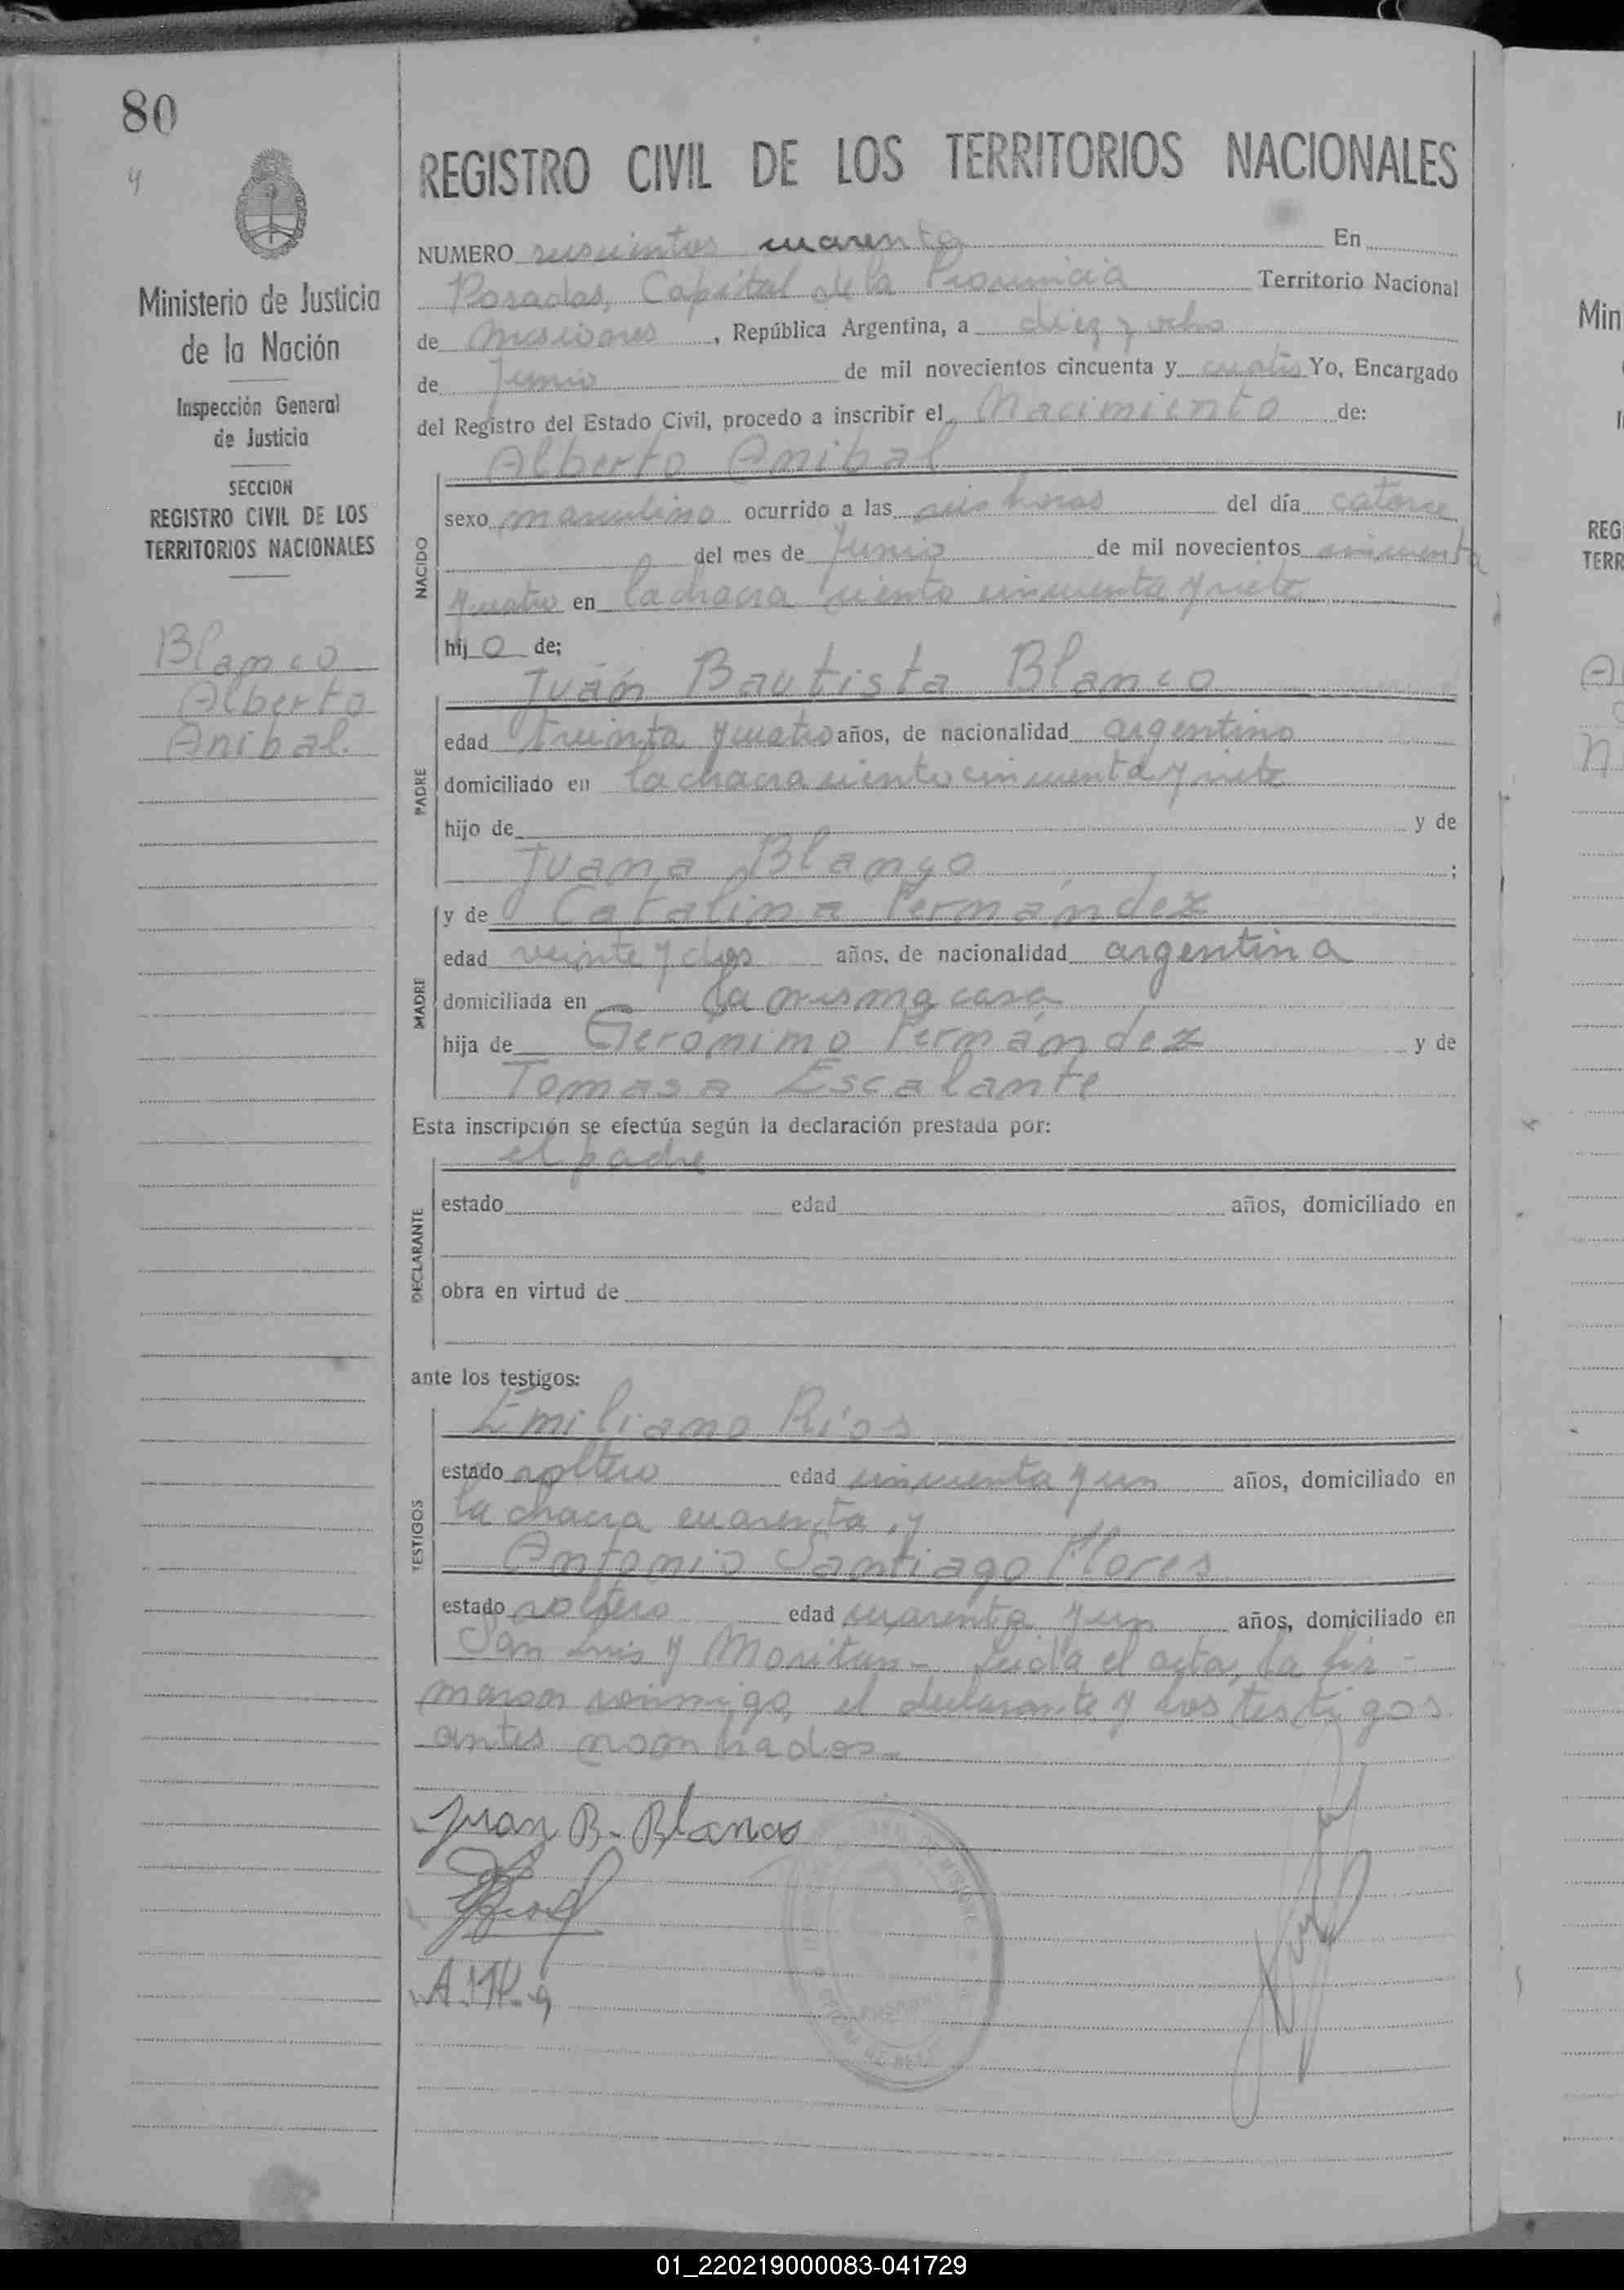 80
4
Ministerio de Justicia
de la Nación
Inspección General
de Justicia
SECCION
REGISTRO CIVIL DE LOS
TERRITORIOS NACIONALES
Blanco
Alberto
Anibal.
REGISTRO CIVIL DE LOS TERRITORIOS NACIONALES
NUMERO seiscientos cuarenta En
Posadas, Capital de la Provincia Territorio Nacional
de Misiones, República Argentina, a diez y ocho
de Junio de mil novecientos cincuenta y cuatro Yo, Encargado
del Registro del Estado Civil, procedo a inscribir el Nacimiento de:
Alberto Anibal
NACIDO
sexo masculino ocurrido a las seis horas del día catorce
del mes de Junio de mil novecientos cincuenta
y cuatro en la chacra ciento cincuenta y siete
hijo de;
Juán Bautista Blanco
PADRE
edad treinta y cuatro años, de nacionalidad argentino
domiciliado en la chacra ciento cincuenta y siete
hijo de y de
Juana Blanco ;
y de Catalina Fernández
MADRE
edad veinte y dos años, de nacionalidad argentina
domiciliada en la misma casa
hija de Gerónimo Fernández y de
Tomasa Escalante
Esta inscripción se efectúa según la declaración prestada por:
el padre
DECLARANTE
estado edad años, domiciliado en
obra en virtud de
ante los testigos:
Emiliano Ríos
TESTIGOS
estado soltero edad cincuenta y un años, domiciliado en
la chacra cuarenta, y
Antonio Santiago Flores
estado soltero edad cuarenta y un años, domiciliado en
San Luis y Leida el acta, la fir-
maron conmigo, el declarante y los testigos
antes nombrados.-
Juan B. Blanco
Min
REG
TERR
01_220219000083-041729